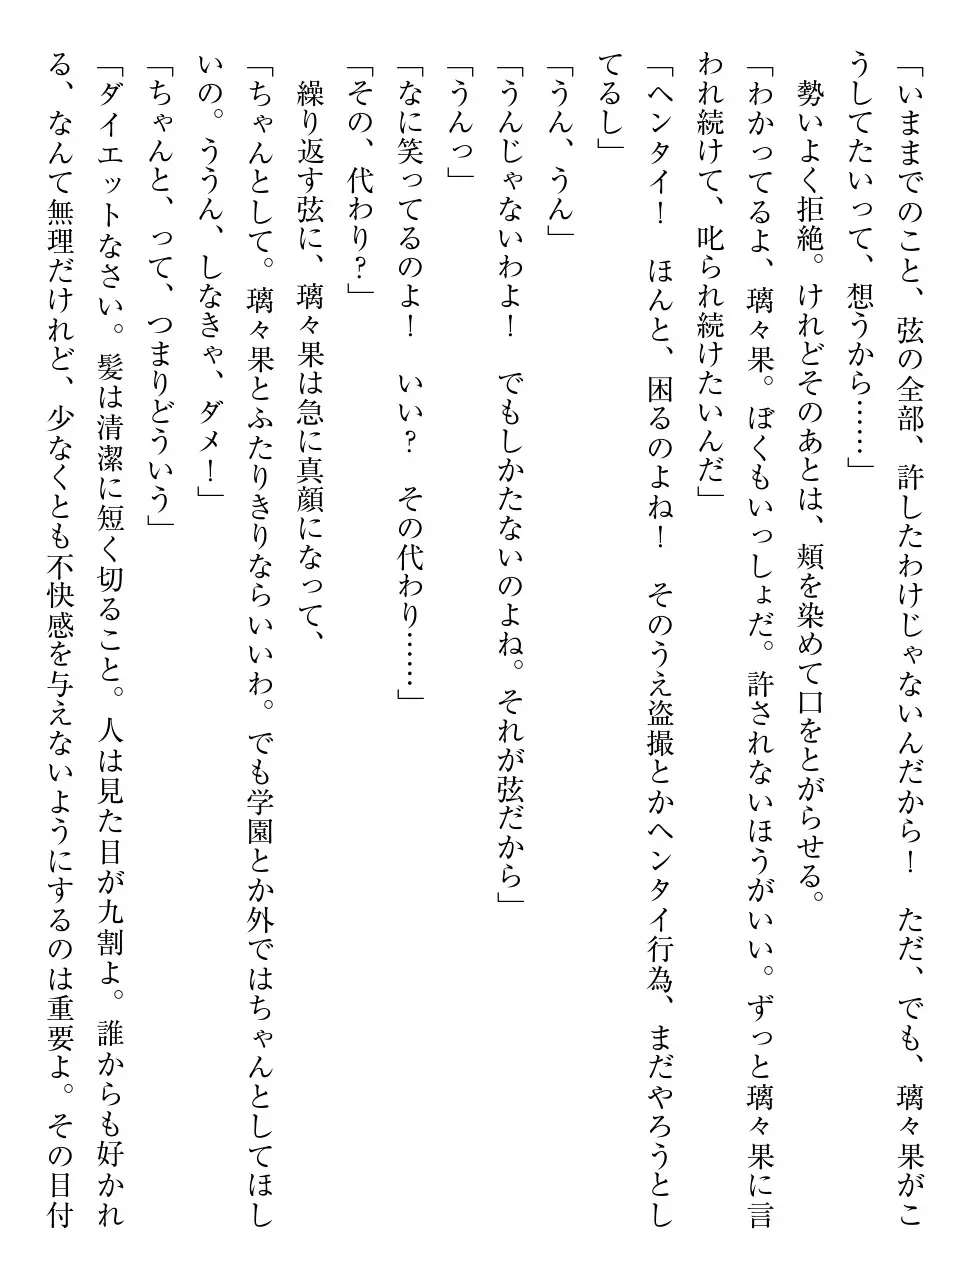 「いままでのこと、弦の全部、許したわけじゃないんだから！　ただ、でも、璃々果がこ
うしてたいって、想うから……」
　勢いよく拒絶。けれどそのあとは、頬を染めて口をとがらせる。
「わかってるよ、璃々果。ぼくもいっしょだ。許されないほうがいい。ずっと璃々果に言
われ続けて、叱られ続けたいんだ」
「ヘンタイ！　ほんと、困るのよね！　そのうえ盗撮とかヘンタイ行為、まだやろうとし
てるし」
「うん、うん」
「うんじゃないわよ！　でもしかたないのよね。それが弦だから」
「うんっ」
「なに笑ってるのよ！　いい？　その代わり……」
「その、代わり？」
　繰り返す弦に、璃々果は急に真顔になって、
「ちゃんとして。璃々果とふたりきりならいいわ。でも学園とか外ではちゃんとしてほし
いの。ううん、しなきゃ、ダメ！」
「ちゃんと、って、つまりどういう」
「ダイエットなさい。髪は清潔に短く切ること。人は見た目が九割よ。誰からも好かれ
る、なんて無理だけれど、少なくとも不快感を与えないようにするのは重要よ。その目付